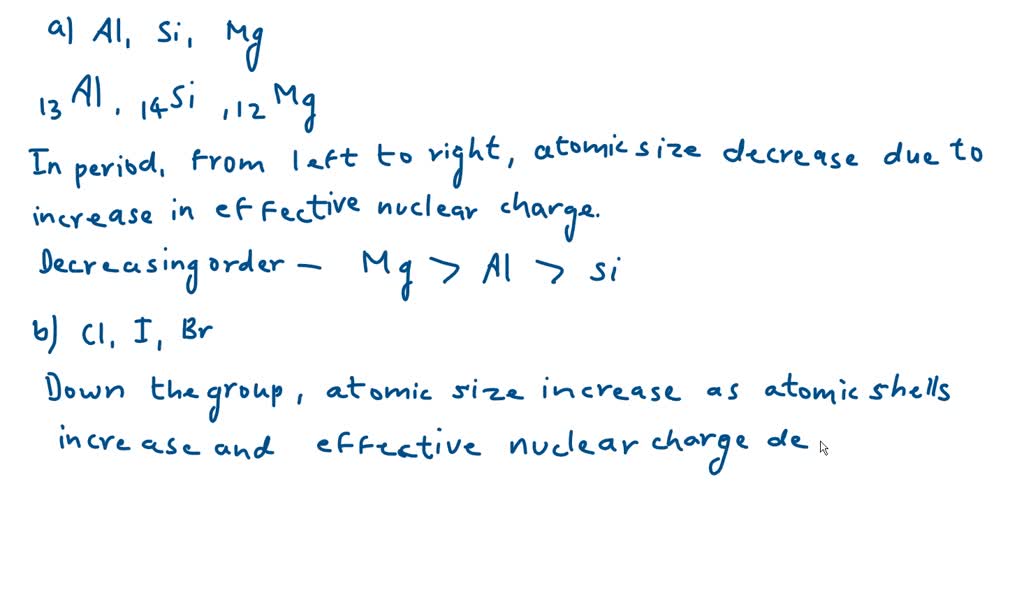 a) Al, Si, Mg
13Al, 14Si, 12Mg
In period, from left to right, atomic size decrease due to
increase in effective nuclear charge.
Decreasing order – Mg > Al > Si
b) Cl, I, Br
Down the group, atomic size increase as atomic shells
increase and effective nuclear charge de